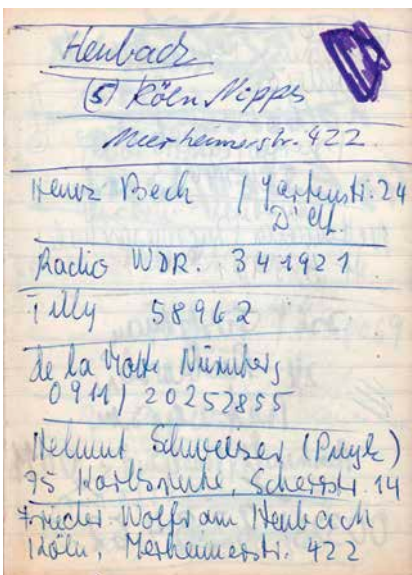 Heubach
(5) Köln Nippes
Meerheimerstr. 422
Heinz Beck / Gartenstr. 24
D'df.
Radio WDR. 341921
Tilly 58962
de la Motte Nürnberg
0911/20252855
Helmut Schweizer (Psych)
75 Karlsruhe, Scherrstr. 14
Friedr. Wolfram Heubach
Köln, Merheimerstr. 422